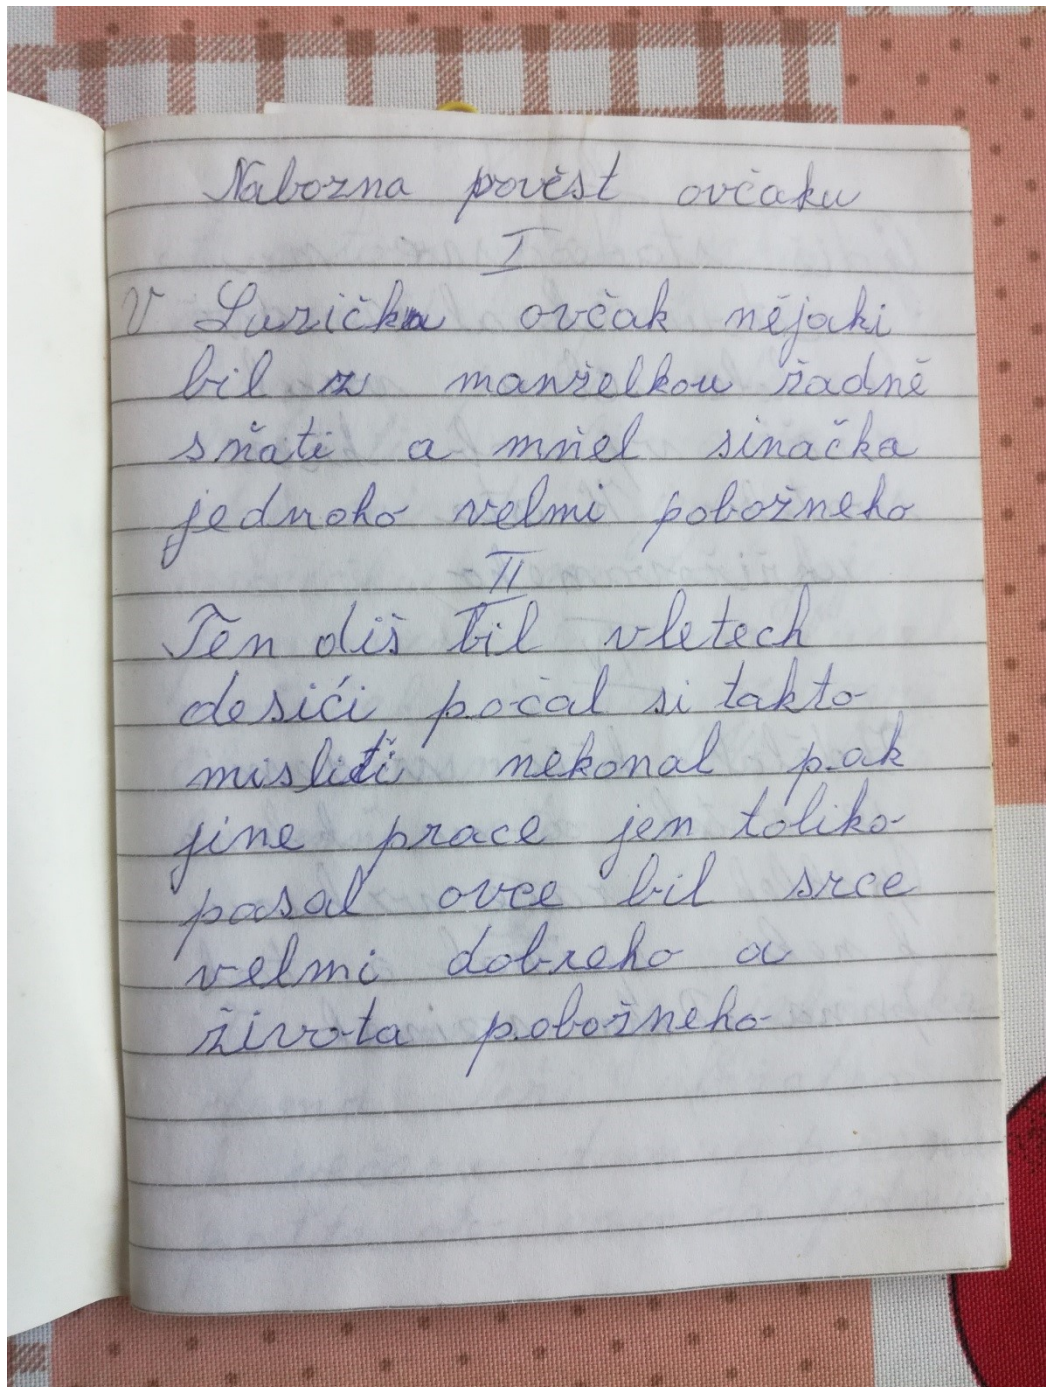 Nabozna povĕst ovčaku
I
V Luričku ovčak nějaki
bil z manželkou žadně
sňati a mňel sinačka
jednoho velmi pobožneho
II
Ten diš bil vletech
desići počal si takto
misliti nekonal pak
jine prace jen toliko
pasal ovce bil srce
velmi dobreho a
života pobožneho